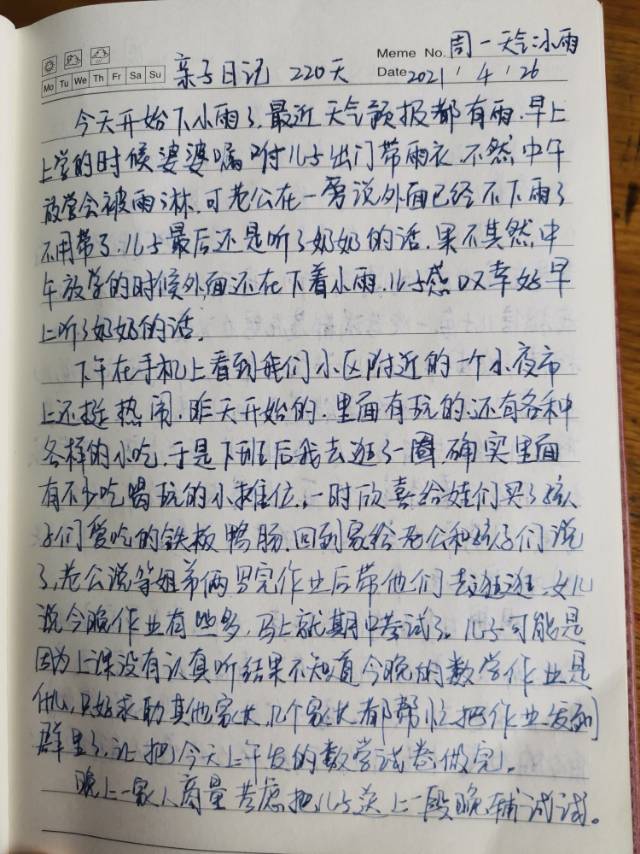 Meme No. 周一 天气:小雨
Mo Tu We Th Fr Sa Su 亲子日记 220天 Date 2021 / 4 / 26
今天开始下小雨了,最近天气预报都有雨,早上
上学的时候婆婆嘱咐儿子出门带雨衣,不然中午
放学会被雨淋,可老公在一旁说外面已经不下雨了
不用带了,儿子最后还是听了奶奶的话,果不其然中
午放学的时候外面还在下着小雨,儿子感叹幸好早
上听了奶奶的话。
下午在手机上看到我们小区附近的一个小夜市
上还挺热闹,昨天开始的,里面有玩的,还有各种
各样的小吃,于是下班后我去逛了一圈,确实里面
有不少吃喝玩的小摊位,一时欣喜给娃们买了孩
子们爱吃的铁板鸭肠,回到家给老公和孩子们说
了,老公说等姐弟俩写完作业后带他们去逛逛,女儿
说今晚作业有些多,马上就期中考试了。儿子可能是
因为上课没有认真听结果不知道今晚的数学作业是
什么,只好求助其他家长,几个家长都帮忙把作业发到
群里了,让把今天上午发的数学试卷做完。
晚上一家人商量考虑把儿子送上一段晚辅试试。